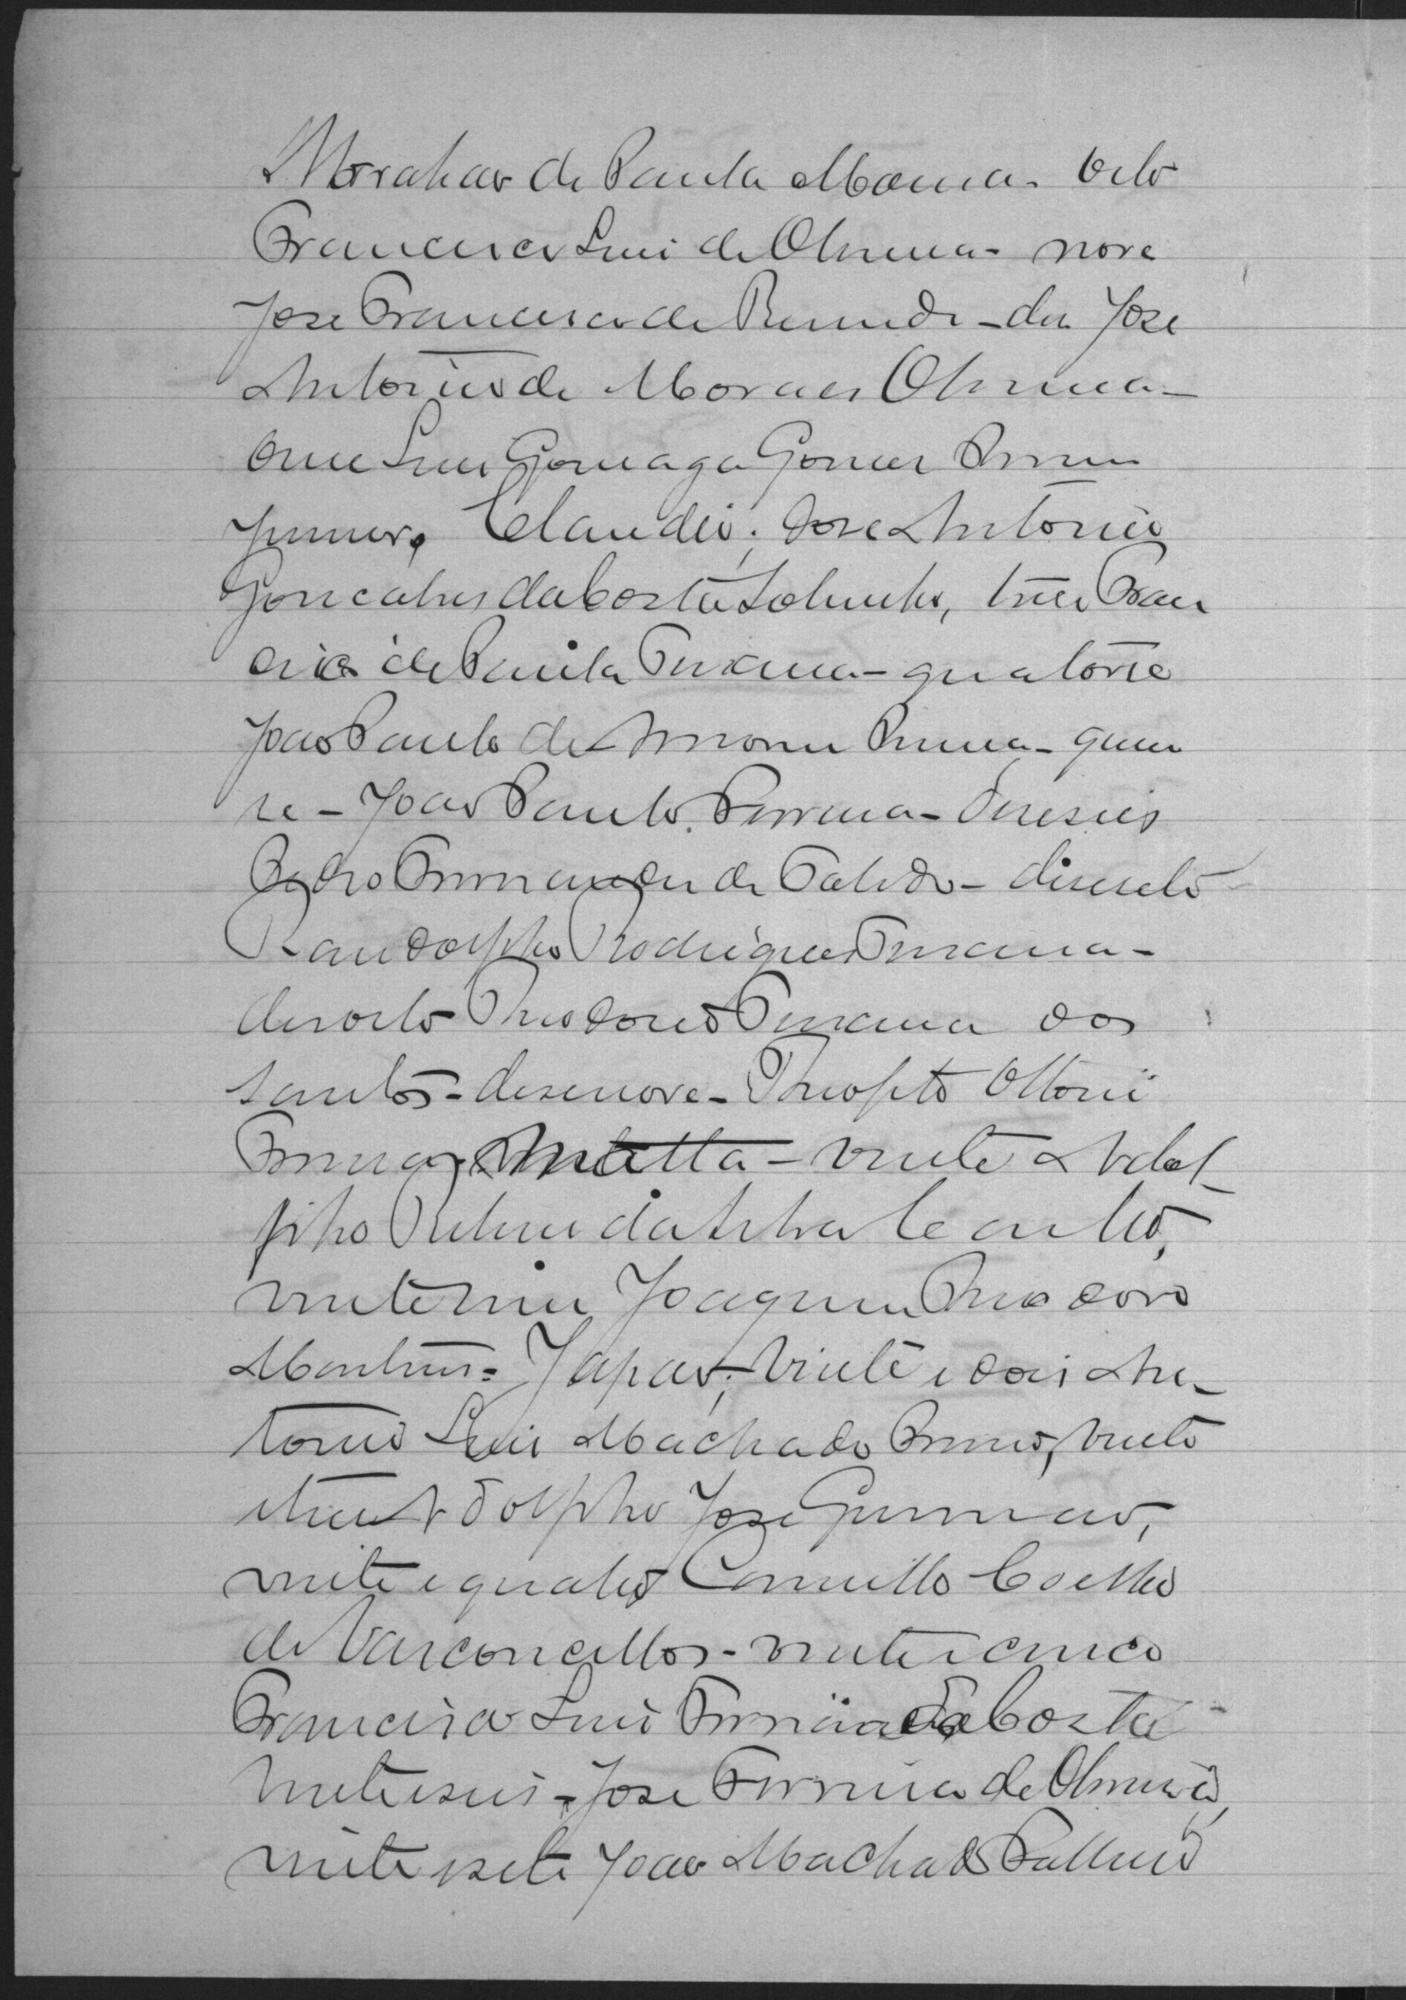 Abrahão de Paula Maria - oito
Francisco Luis de Oliveira - nove
Jose Francisco de Resende - des Jose
Antonio de Moraes Oliveira -
onze Luis Gonzaga Gomes
Junior, Claudio; dose Antonio
Gonçalves da Costa Sobrinho, trese Fran
cisco de Paula Teixeira - quatorse
João Paulo de Amorim - quin
se - João Paulo Ferreira - deseseis
Pedro Fernandes de Toledo - desesete
Randolpho Rodrigues Teixeira -
desoito Theodoro Teixeira dos
Santos - desenove - Theophilo Ottoni
Ferreira Motta - vinte Adol
pho Ribeiro da Silva
vinte e um Joaquim Theodoro
Martins - Japão; vinte e dois An-
tonio Luis Machado, vinte
e tres Adolpho Jose
vinte e quatro Camillo Coelho
de Vasconcellos - vinte e cinco
Francisco Luis Ferreira da Costa
vinte e seis - Jose Ferreira de Oliveira,
vinte e sete João Machado